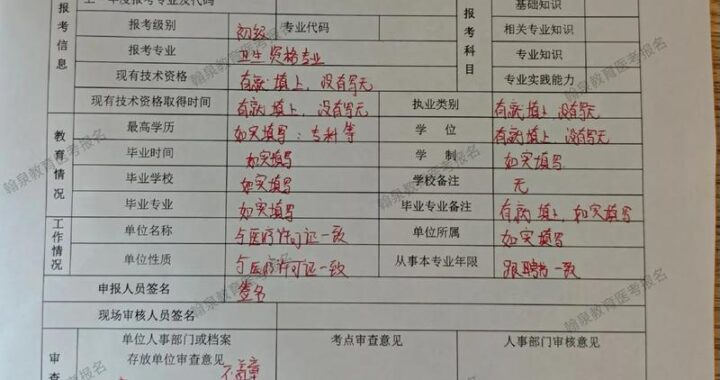 上一年度报考专业及代码
基础知识
报考级别 初级 专业代码 相关专业知识
报考信息 报考科目
报考专业 卫生资格专业 专业知识
现有技术资格 有就填上,没有写无 专业实践能力
现有技术资格取得时间 有就填上,没有写无 执业类别 有就填上 没有写无
最高学历 如实填写:专科等 学位 有就填上,没有写无
教育情况
毕业时间 如实填写 学制 如实填写
毕业学校 如实填写 学校备注 无
毕业专业 如实填写 毕业专业备注 有就填上,如实填写
单位名称 与医疗许可证一致 单位所属 如实填写
工作情况
单位性质 与医疗许可证一致 从事本专业年限 跟聘书一致
申报人员签名 签名
现场审核人员签名
单位人事部门或档案 考点审查意见 人事部门审核意见
存放单位审查意见
审查
不盖章
翰泉教育医考报名